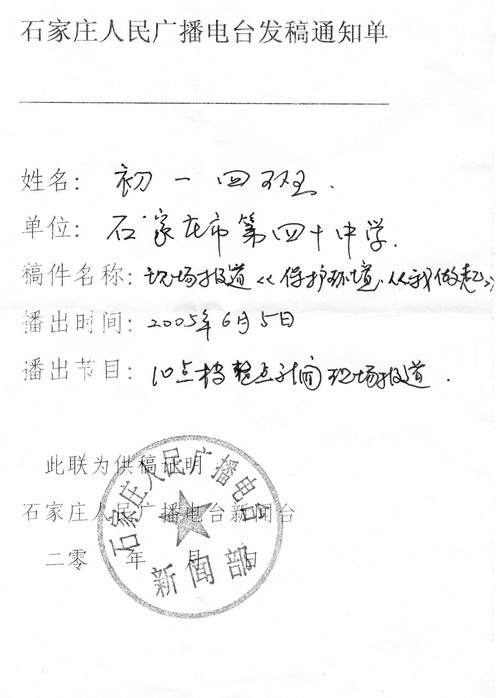 石家庄人民广播电台发稿通知单
姓名: 初一四班.
单位: 石家庄市第四十中学.
稿件名称: 现场报道《保护环境,从我做起》
播出时间: 2005年6月5日
播出节目: 10点档整点新闻现场报道.
此联为供稿证明
石家庄人民广播电台新闻台
二零 年 月 日
石家庄人民广播电台
新闻部